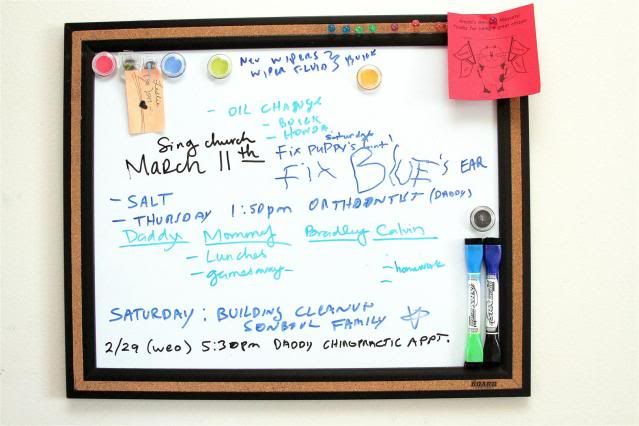 NEW WIPERS } BUICK
WIPER FLUID
- OIL CHANGE
- BUICK
- HONDA
Sing church
March 11th
Saturday
Fix PUPPY'S
Fix BLUE's EAR
- SALT
- THURSDAY 1:50pm ORTHODONTIST (DADDY)
Daddy Mommy Bradley Calvin
- Lunches
- homework
-
SATURDAY : BUILDING CLEANUP
FAMILY
2/29 (WED) 5:30pm DADDY CHIROPRACTIC APPT.
BOARD